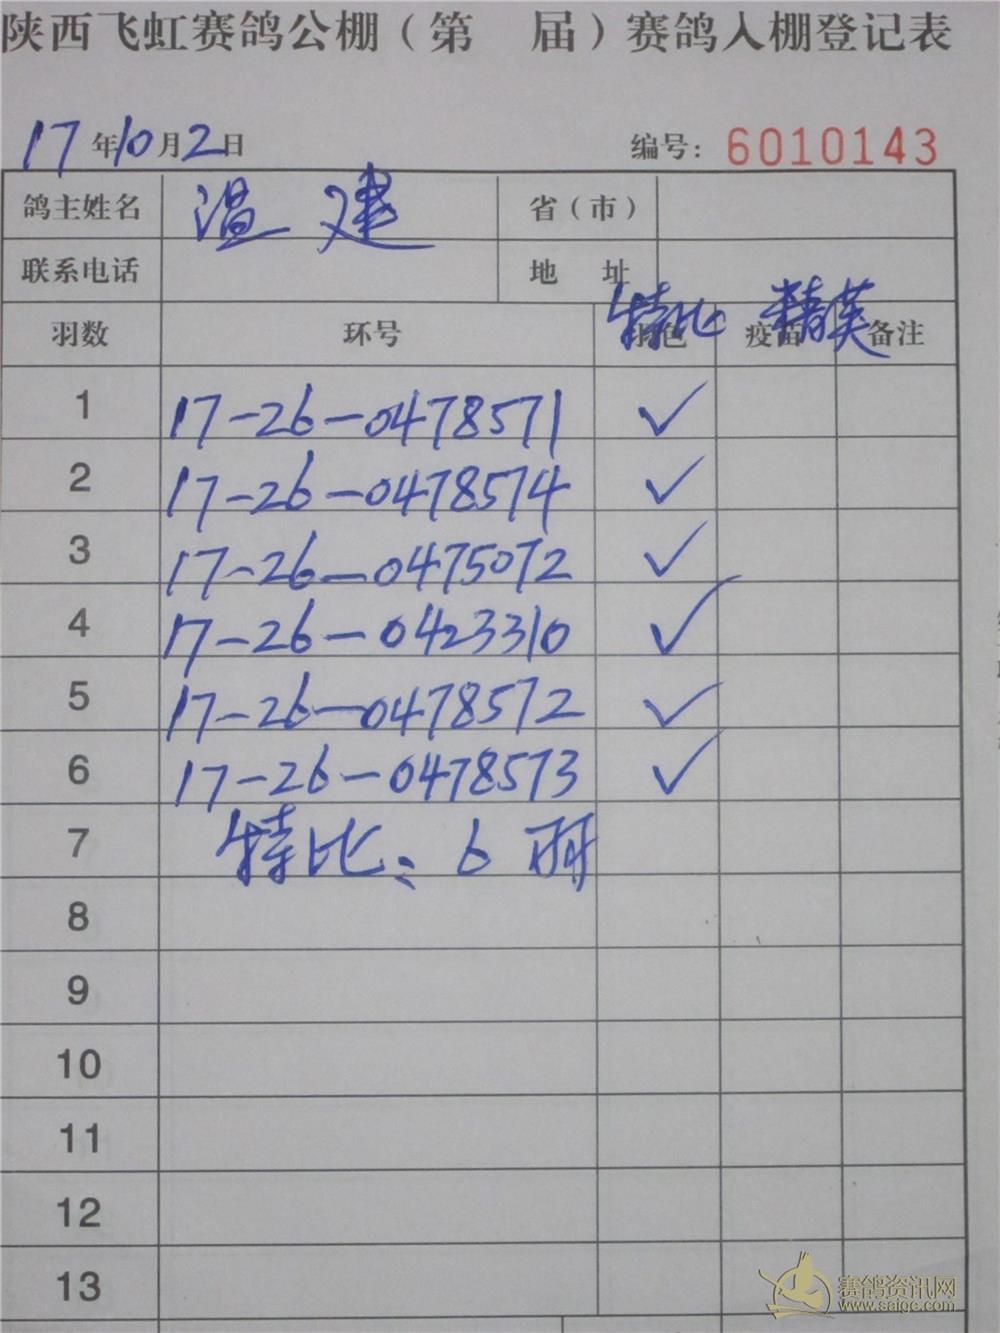 陕西飞虹赛鸽公棚（第 届）赛鸽入棚登记表
17年10月2日 编号：6010143
鸽主姓名 温建 省（市）
联系电话 地址
羽数 环号 羽色 特比 疫苗 精英 备注
1 17-26-0478571 ✓
2 17-26-0478574 ✓
3 17-26-0475072 ✓
4 17-26-0423310 ✓
5 17-26-0478572 ✓
6 17-26-0478573 ✓
7 特比：6羽
8
9
10
11
12
13
赛鸽资讯网
www.saige.com